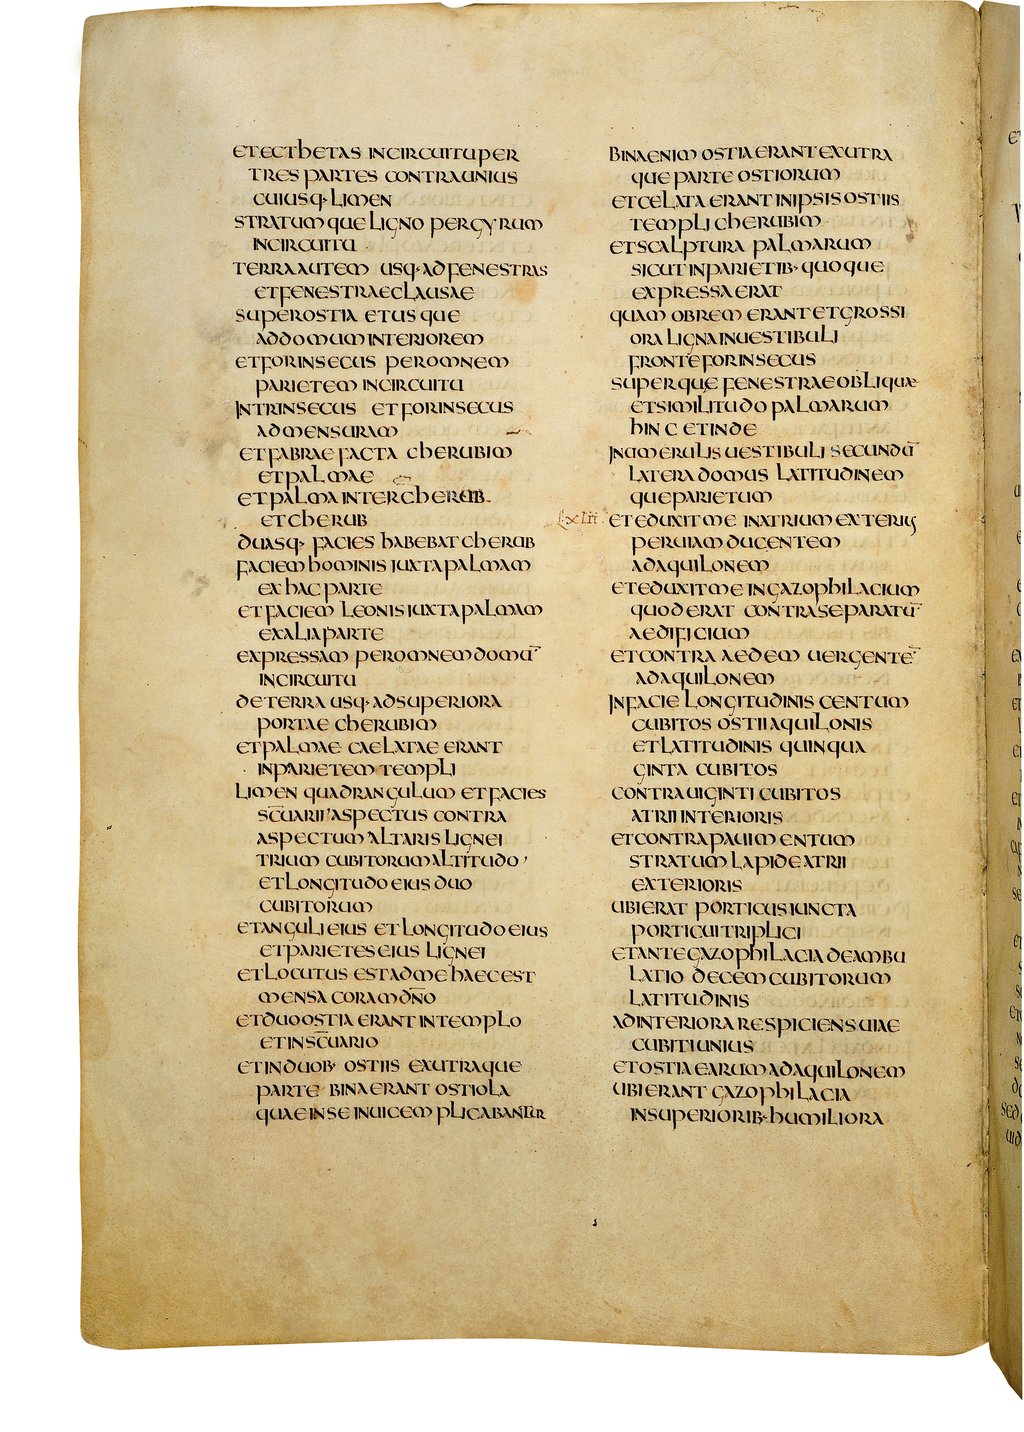 ET ECTHETAS IN CIRCUITU PER
TRES PARTES CONTRA UNIUS
CUIUSQ· LIMEN
STRATUMQUE LIGNO PER GYRUM
IN CIRCUITU
TERRA AUTEM USQ· AD FENESTRAS
ET FENESTRAE CLAUSAE
SUPER OSTIA ET USQUE
AD DOMUM INTERIOREM
ET FORINSECUS PER OMNEM
PARIETEM IN CIRCUITU
INTRINSECUS ET FORINSECUS
AD MENSURAM
ET FABRAE FACTA CHERUBIM
ET PALMAE
ET PALMA INTER CHERUB
ET CHERUB
DUASQ· FACIES HABEBAT CHERUB
FACIEM HOMINIS IUXTA PALMAM
EX HAC PARTE
ET FACIEM LEONIS IUXTA PALMAM
EX ALIA PARTE
EXPRESSAM PER OMNEM DOMŪ
IN CIRCUITU
DE TERRA USQ· AD SUPERIORA
PORTAE CHERUBIM
ET PALMAE CAELATAE ERANT
IN PARIETEM TEMPLI
LIMEN QUADRANGULUM ET FACIES
SC̅UARII ASPECTUS CONTRA
ASPECTUM ALTARIS LIGNEI
TRIUM CUBITORUM ALTITUDO
ET LONGITUDO EIUS DUO
CUBITORUM
ET ANGULI EIUS ET LONGITUDO EIUS
ET PARIETES EIUS LIGNEI
ET LOCUTUS EST AD ME HAEC EST
MENSA CORAM DN̅O
ET DUO OSTIA ERANT IN TEMPLO
ET IN SC̅UARIO
ET IN DUOB· OSTIIS EX UTRAQUE
PARTE BINA ERANT OSTIOLA
QUAE IN SE INUICEM PLICABANTUR
BINA ENIM OSTIA ERANT EX UTRA
QUE PARTE OSTIORUM
ET CELATA ERANT IN IPSIS OSTIIS
TEMPLI CHERUBIM
ET SCALPTURA PALMARUM
SICUT IN PARIETIB· QUOQUE
EXPRESSA ERAT
QUAM OBREM ERANT ET GROSSI
ORA LIGNA IN UESTIBULI
FRONTE FORINSECUS
SUPER QUE FENESTRAE OBLIQUAE
ET SIMILITUDO PALMARUM
HINC ET INDE
IN UMERULIS UESTIBULI SECUNDŪ
LATERA DOMUS LATITUDINEM
QUE PARIETUM
LXLIII ET EDUXIT ME IN ATRIUM EXTERIUS
PER UIAM DUCENTEM
AD AQUILONEM
ET EDUXIT ME IN GAZOPHILACIUM
QUOD ERAT CONTRA SEPARATŪ
AEDIFICIUM
ET CONTRA AEDEM UERGENTĒ
AD AQUILONEM
IN FACIE LONGITUDINIS CENTUM
CUBITOS OSTII AQUILONIS
ET LATITUDINIS QUINQUA
GINTA CUBITOS
CONTRA UIGINTI CUBITOS
ATRII INTERIORIS
ET CONTRA PAUIMENTUM
STRATUM LAPIDE ATRII
EXTERIORIS
UBI ERAT PORTICUS IUNCTA
PORTICUI TRIPLICI
ET ANTE GAZOPHILACIA DEAMBU
LATIO DECEM CUBITORUM
LATITUDINIS
AD INTERIORA RESPICIENS UIAE
CUBITI UNIUS
ET OSTIA EARUM AD AQUILONEM
UBI ERANT GAZOPHILACIA
IN SUPERIORIB· HUMILIORA